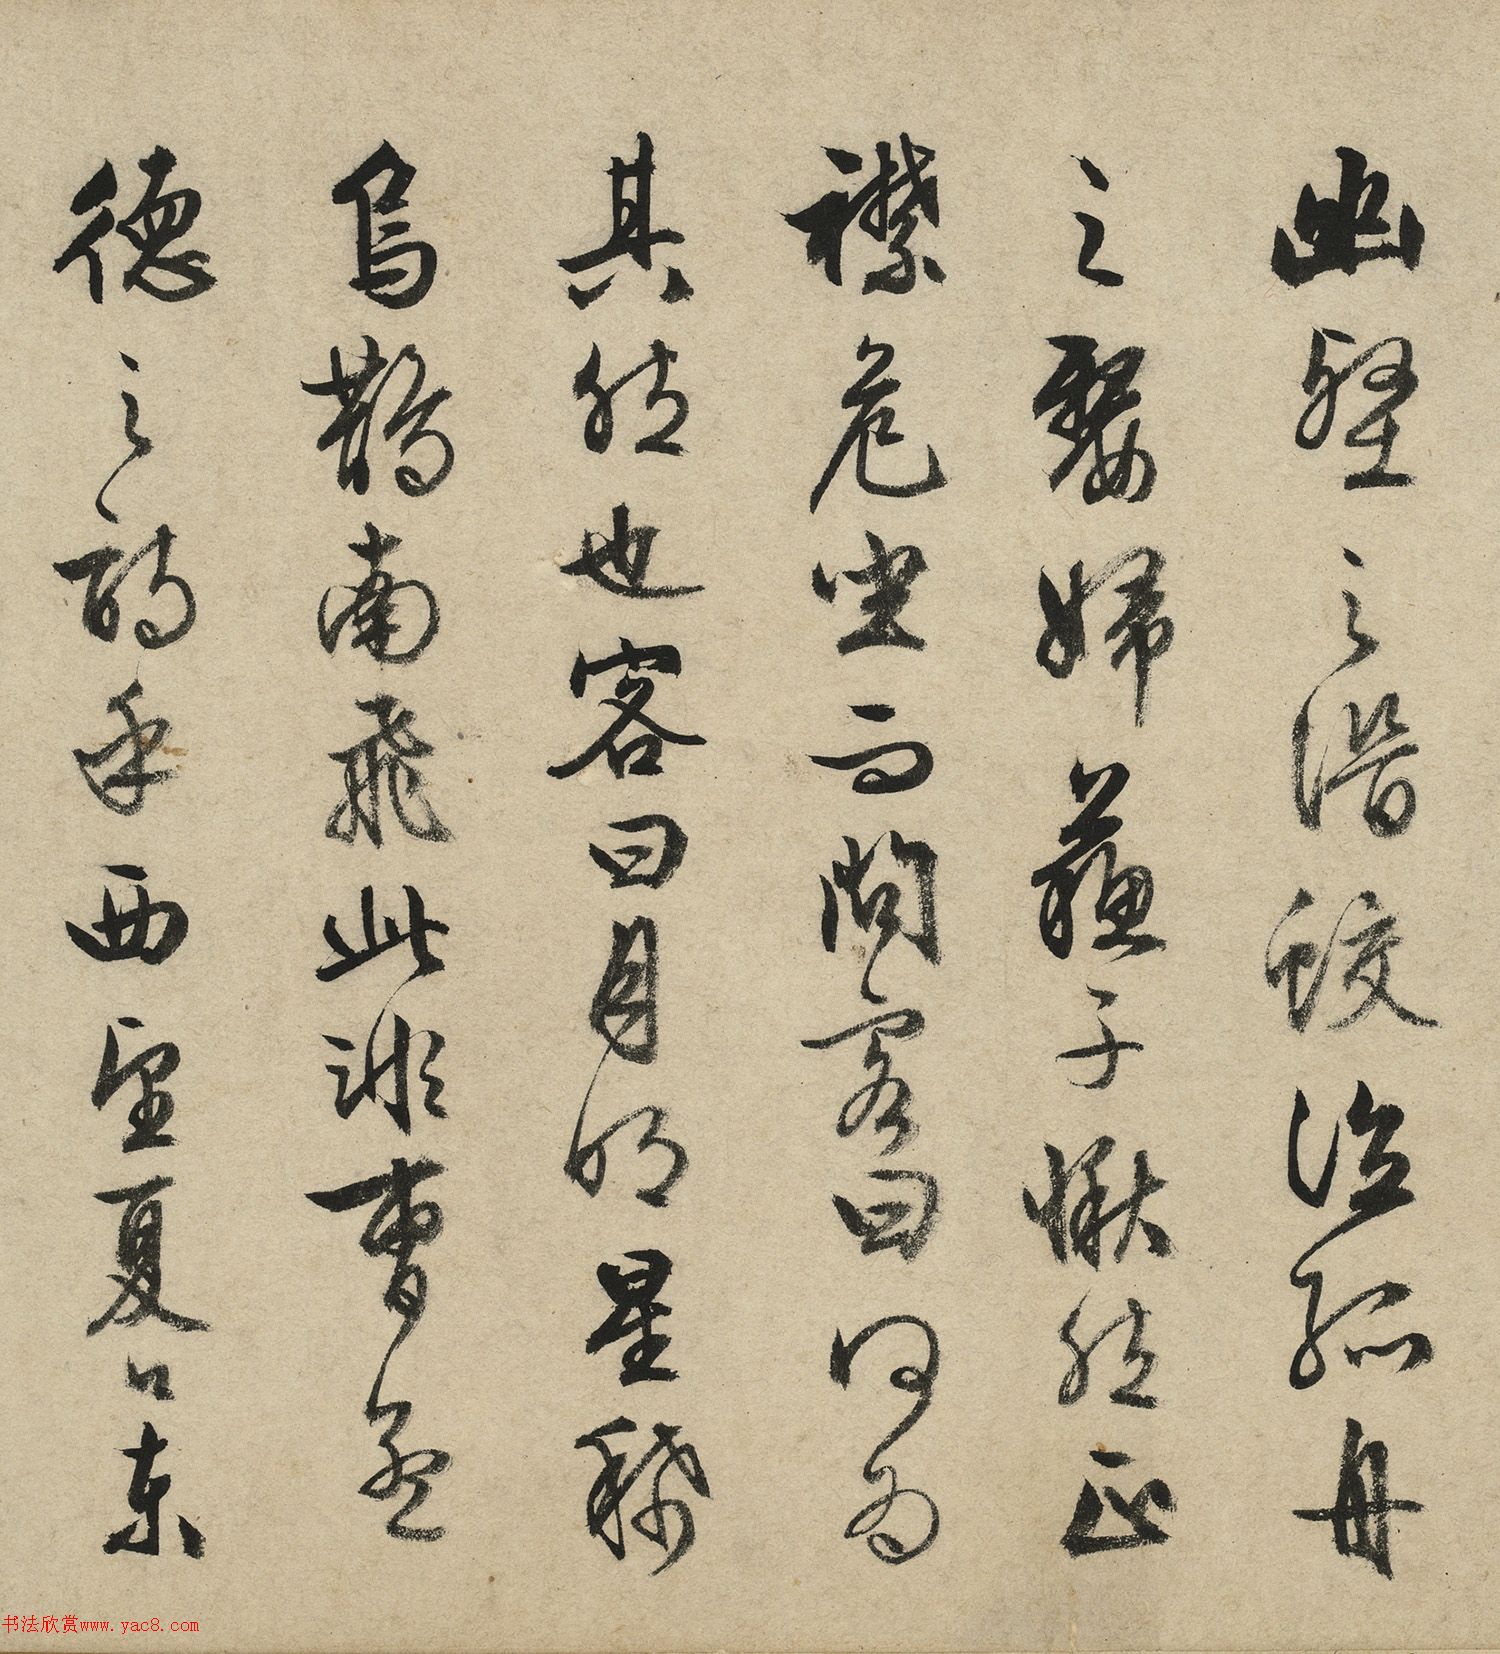 幽壑之潛蛟泣孤舟
之嫠婦蘇子愀然正
襟危坐而問客曰何為
其然也客曰月明星稀
烏鵲南飛此非曹孟
德之詩乎西望夏口東
书法欣赏www.yac8.com